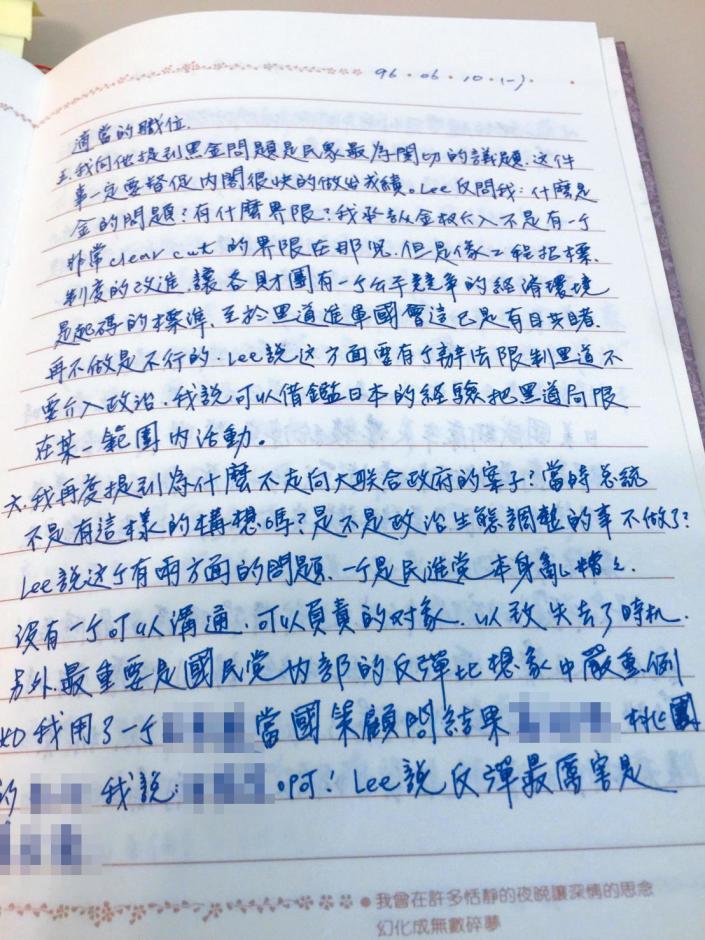 96.06.10.(一).
適當的職位.
五.我向他提到黑金問題是民眾最為関切的議題.这件
事一定要督促内閣很快的做出成績。Lee反問我:什麼是
金的問題?有什麼界限?我
非常clear cut的界限在那兒.但是像工程招標.
制度的改進.讓各財團有一个公平競争的經濟環境
是起碼的標準.至於黑道進軍國會這已是有目共睹.
再不做是不行的.Lee說这方面要有个辦法限制黑道不
要介入政治.我說可以借鑑日本的經驗把黑道局限
在某一範圍内活動。
六.我再度提到為什麼不走向大联合政府的案子?當時总統
不是有這樣的構想嗎?是不是政治生態調整的事不做了?
Lee說这个有兩方面的問題.一个是民進党本身亂糟々.
沒有一个可以溝通.可以負責的对象.以致失去了時机.
另外.最重要是國民党内部的反彈比想象中嚴重.例
如我用了一个 當國策顧問結果 桃園
的 我說: 啊!Lee說反彈最厲害是
●我曾在許多恬靜的夜晚讓深情的思念
幻化成無數碎夢